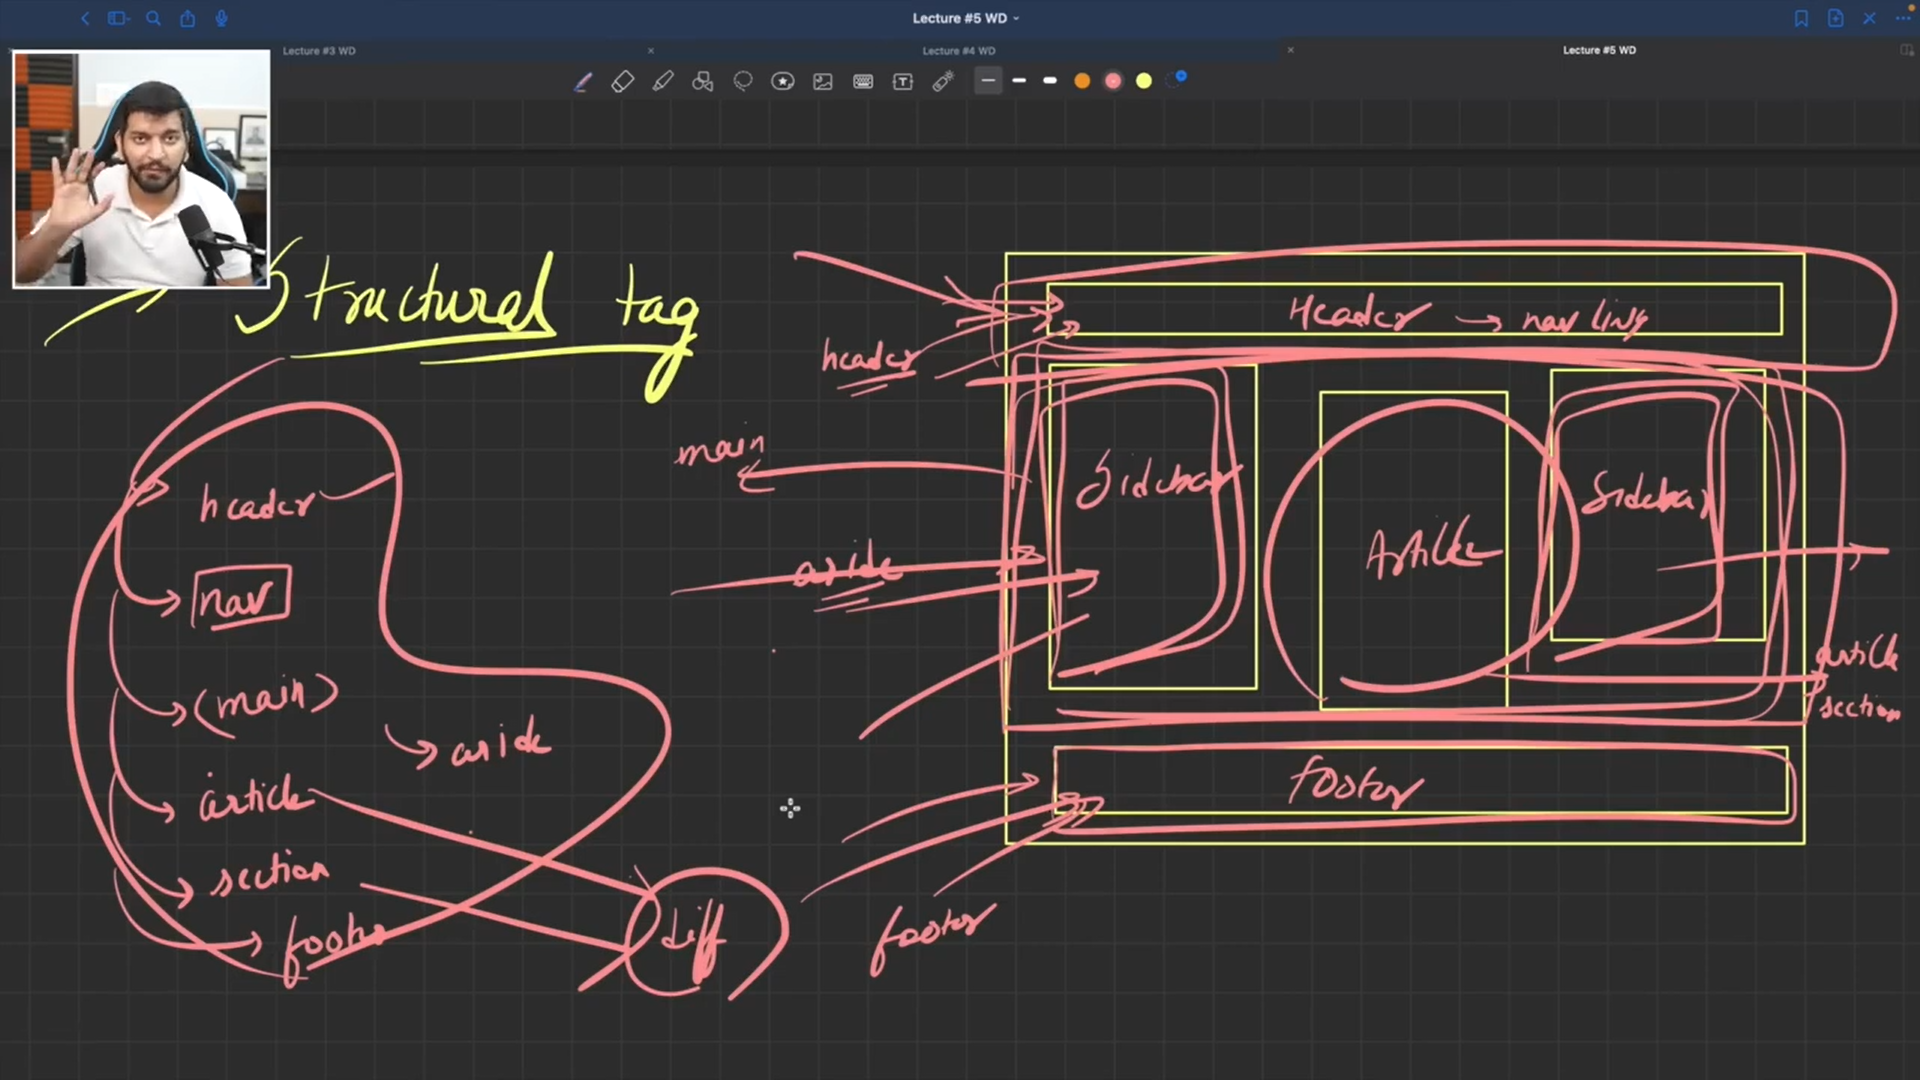 Lecture #5 WD
Lecture #3 WD
Lecture #4 WD
Lecture #5 WD
Structural tag
header
nav
(main)
aside
article
section
footer
diff
header
main
aside
footer
Header → nav link
Sidebar
Article
Sidebar
article
section
footer